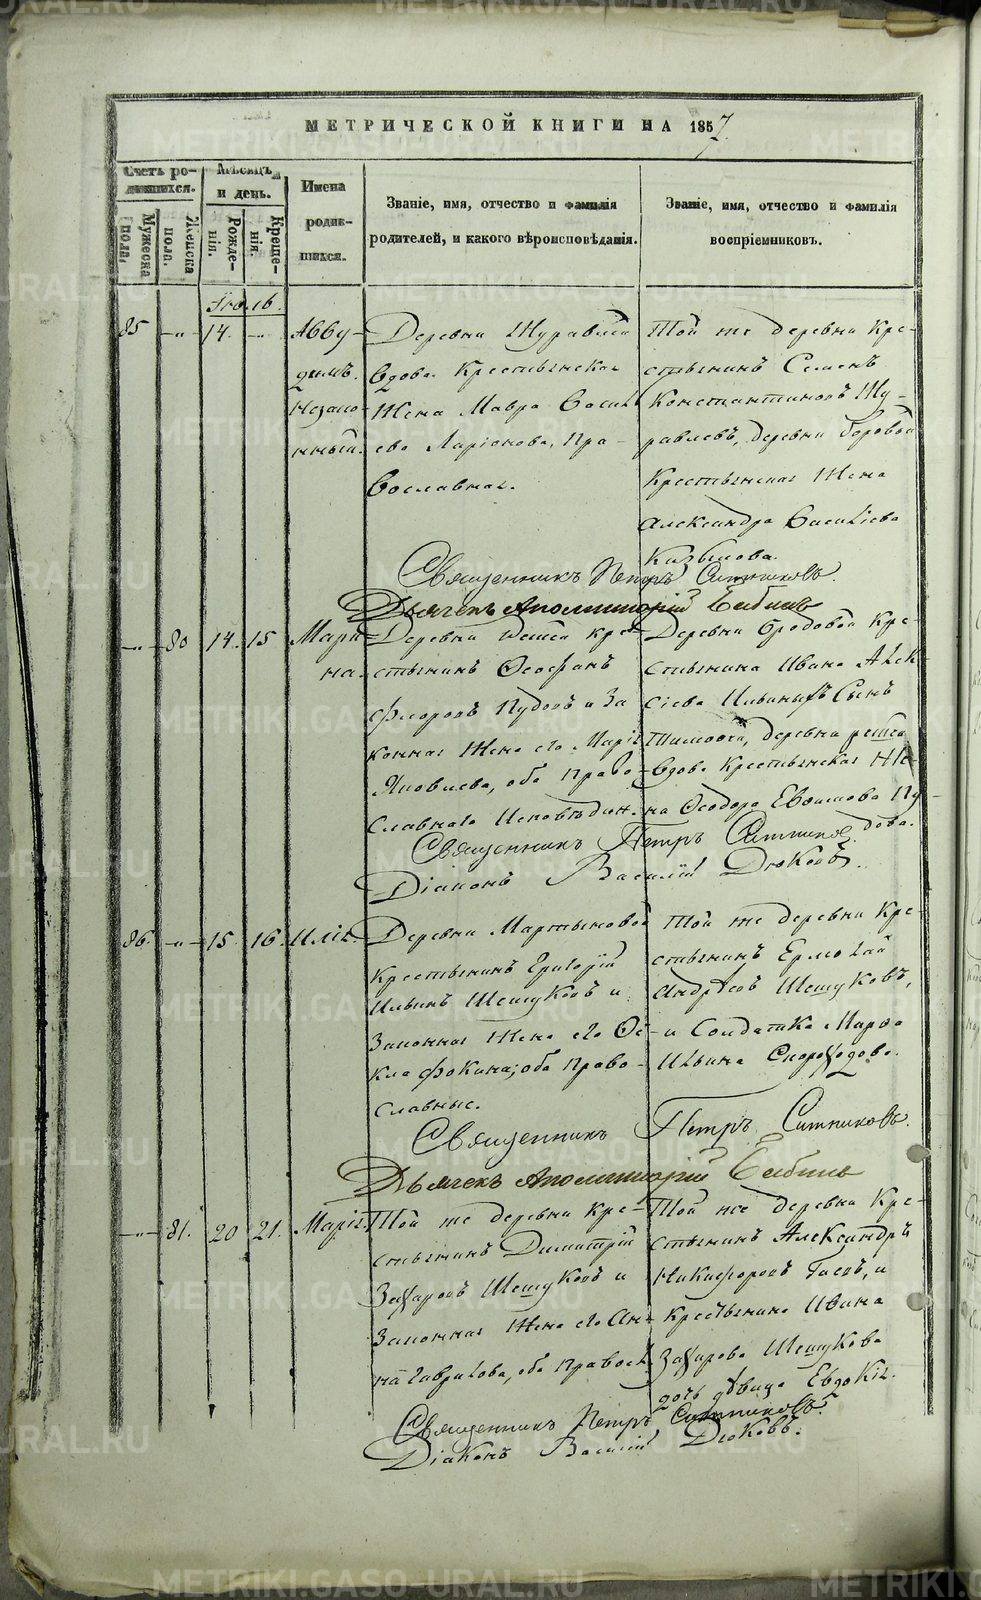 МЕТРИЧЕСКОЙ КНИГИ НА 1857
Счетъ родившихся.
Мѣсяцъ и день.
Имена родившихся.
Званіе, имя, отчество и фамилія родителей, и какого вѣроисповѣданія.
Званіе, имя, отчество и фамилія воспріемниковъ.
Мужеска пола.
Женска пола.
Рожденія.
Крещенія.
Іюль.
85 -"- 14. -
Авву-
димъ.
незако-
нный.
Деревни Журавлей
вдова Крестьянская
Жена Мавра Василь
ева Ларіонова, пра-
вославная.
Той же деревни Кре-
стьянинъ Семенъ
Константиновъ Жу-
равлевъ, деревни Боровой
Крестьянская Жена
Александра Василіева
Священникъ Петръ Ситниковъ.
Дьячекъ Аполлинарій
-"- 80 14. 15
Мари-
на.
Деревни кре-
стьянинъ Ѳеофанъ
Пудовъ и За
конная Жена его Марія
Яковлева, оба Право-
славнаго Исповѣдан.
Деревни Бродовой Кре-
стьянина Ивана Алек-
сіева Ильиныхъ Сынъ
Тимоѳей, деревни
Вдова Крестьянская Же-
на Ѳеодора Евѳимова Пу-
дова.
Священникъ Петръ Ситников
Діаконъ Василій Дюковъ.
86. -"- 15. 16.
Илія.
Деревни Мартыновой
Крестьянинъ Григорій
Ильинъ Шешуковъ и
Законная Жена его Ѳе-
кла Фокина; оба Право-
славные.
Той же деревни Кре-
стьянинъ Ермолай
Андреевъ Шешуковъ,
и Солдатка Марѳа
Ильина Скороходова.
Священникъ Петръ Ситниковъ.
Дьячекъ Аполлинарій
-"- 81. 20 21.
Марія.
Той же деревни Кре-
стьянинъ Димитрій
Захаровъ Шешуковъ и
Законная Жена его Ан-
на Гаврилова, оба Правосл.
Той же деревни Кре-
стьянинъ Александръ
Никифоровъ и
Крестьянина Ивана
Захарова Шешукова
дочь дѣвица Евдокія.
Священникъ Петръ Ситниковъ.
Діаконъ Василій Дюковъ.
METRIKI.GASO-URAL.RU